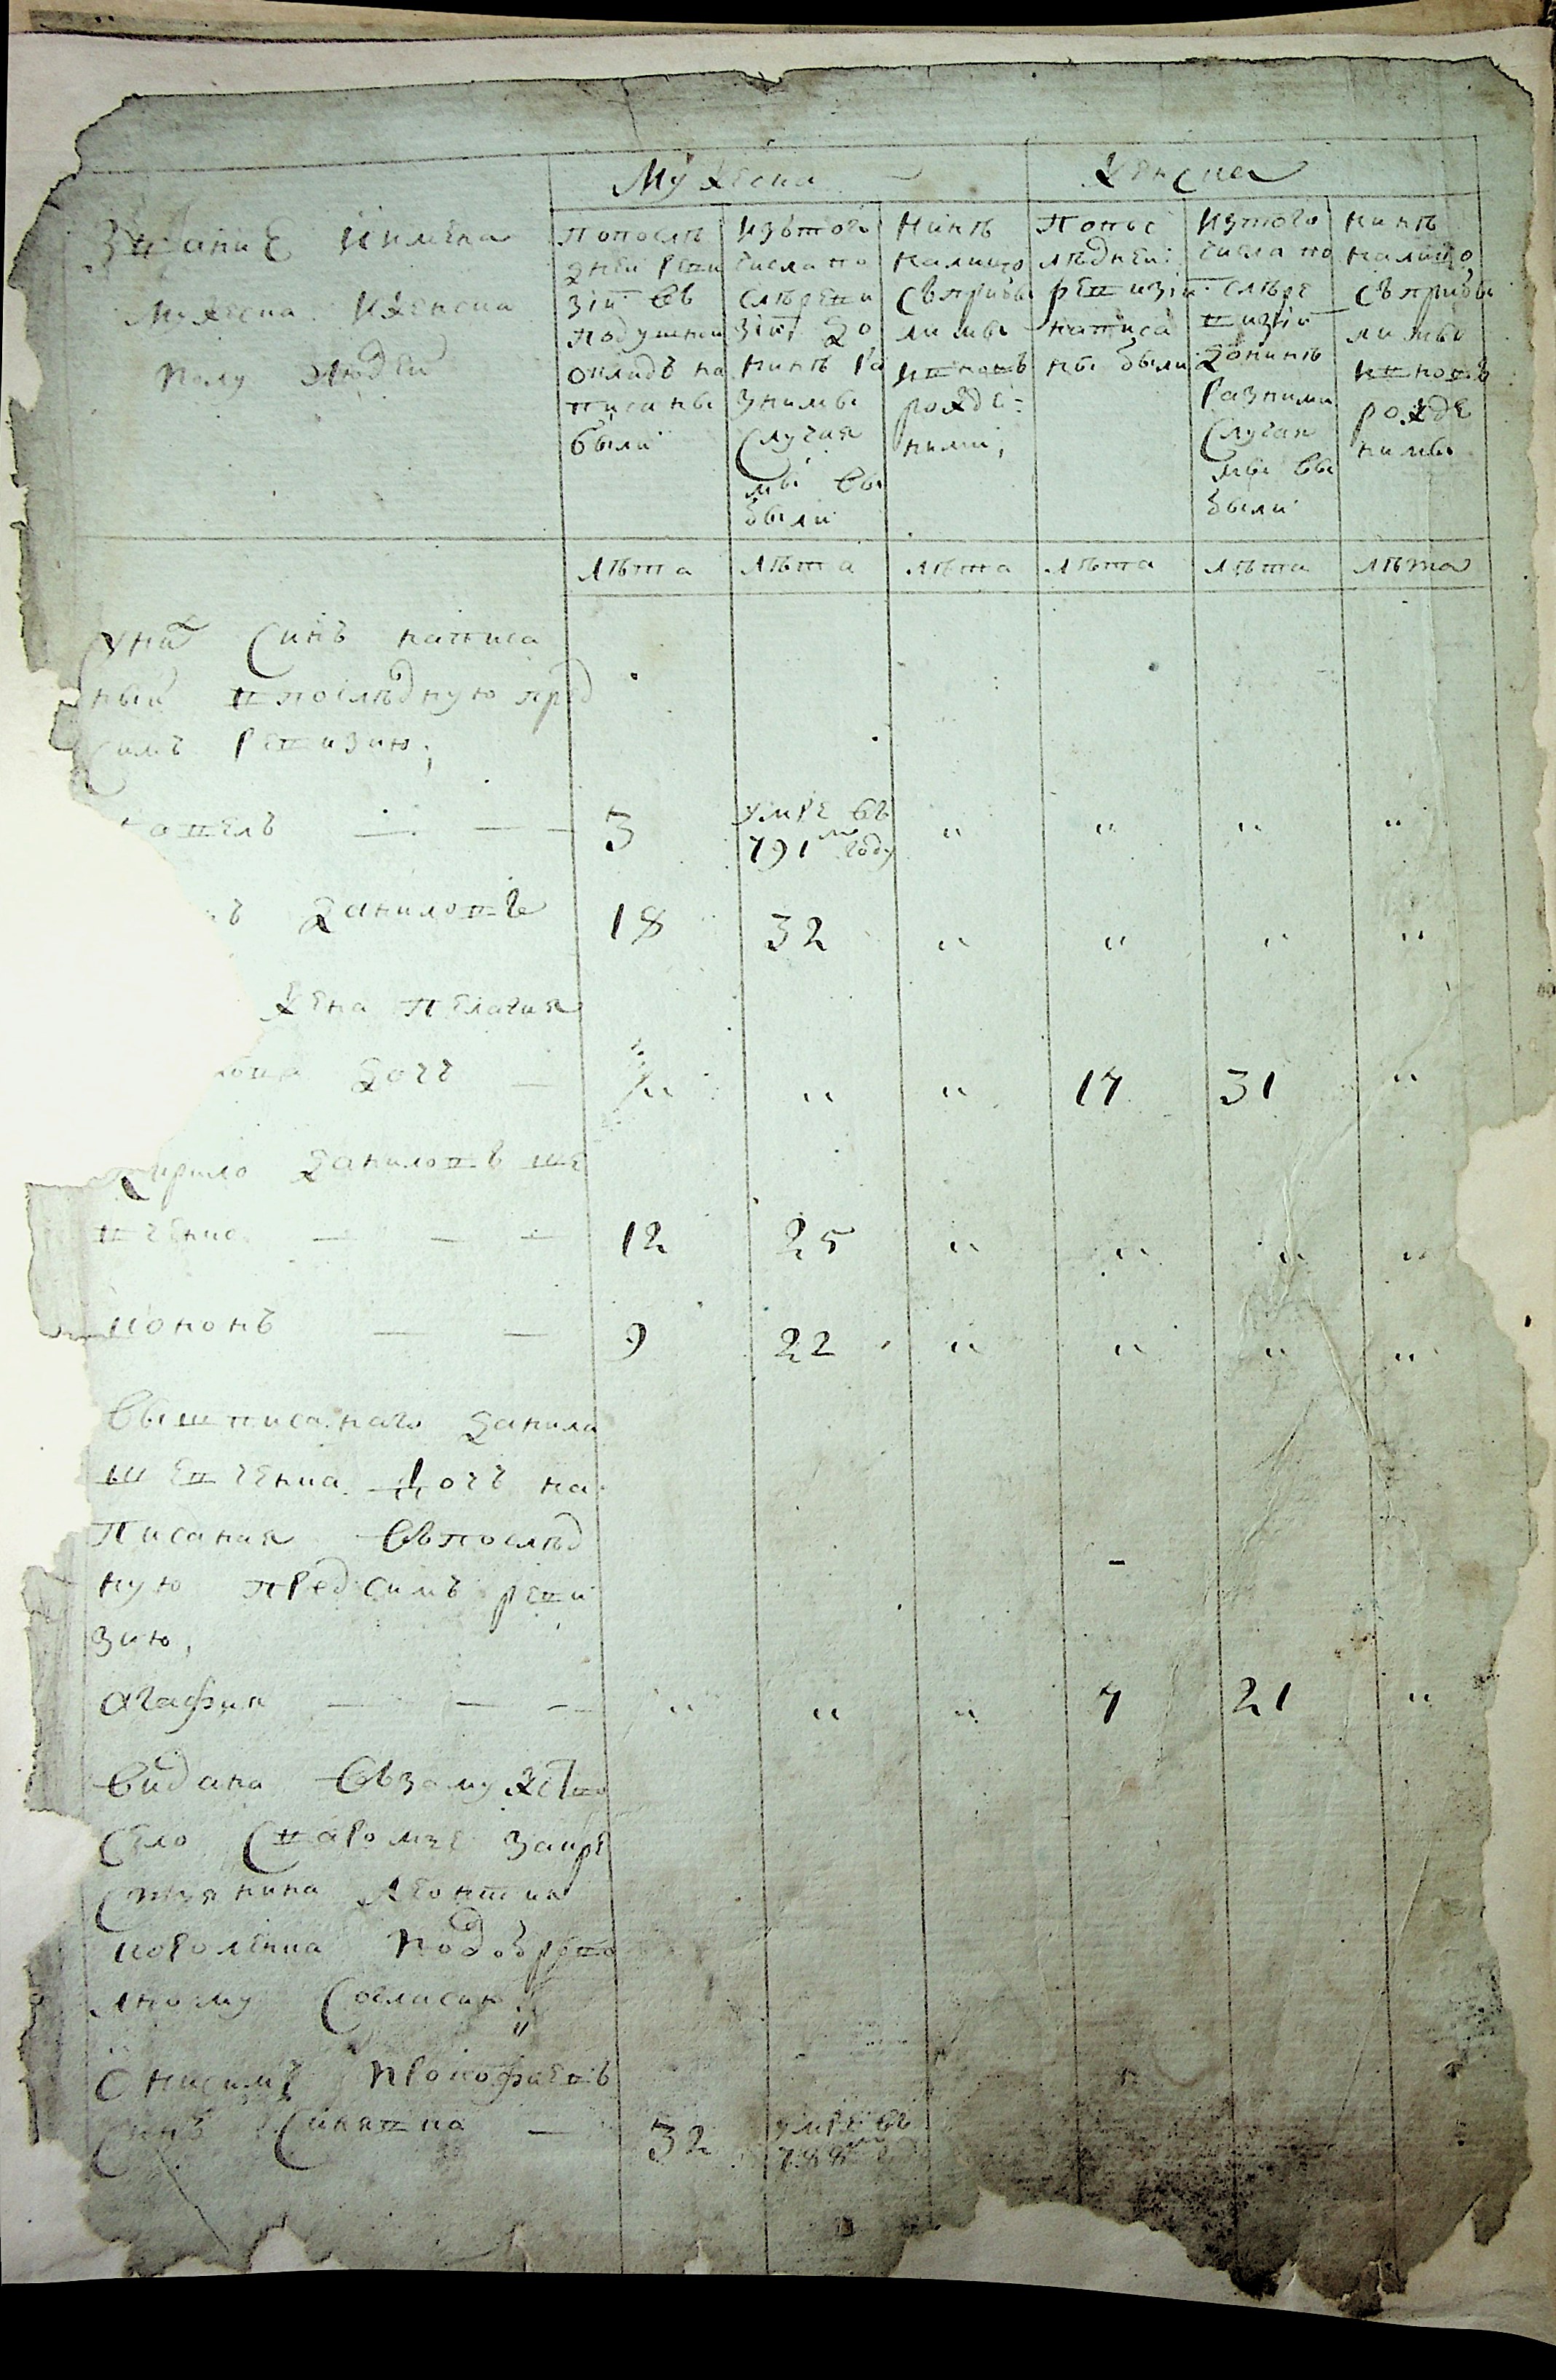 Мужеска Женска
Званиe и имена
Мужеска и женска
полу людей
По после
дней реви
зіи въ
подушни
окладъ на
писаны
были
Изътого
числа по
слѣреви
зіи до
нинѣ ра
знимы
случая
мы вы
были
Нинѣ
налицо
съприбы
лимы
ивновъ
рожде:
ними,
Попос
лѣдней:
ревизіи
написа
ны были
Изтого
числа по
слѣре
визіи
донинѣ
разними
случая
мы вы
были
Нинѣ
налицо
съприбы
лимы
ивновъ
рожде
нимы
лѣта лѣта лѣта лѣта лѣта лѣта
унит синъ написа
ный впослѣдную пред
симъ ревизию;
авелъ — — — 3 умре въ 791мъ году " " " "
ъ Даниловъ 18 32 " " " "
жена Пелагия
дочъ — " " " 17 31 "
Кирило Даниловъ ше
вченко — — — 12 25 " " " "
Кононъ — — 9 22 " " " "
Вышписанаго Данила
Шевченка дочъ на
писания въпослѣд
ную предсимъ реви
зию,
Агафия — — — " " " 7 21 "
видана възамужство
село закре
стянина Леонтия
Короленка подобрево
лному согласию;
Онисимъ Прокофиевъ
синъ — 32 умре въ 788мъ